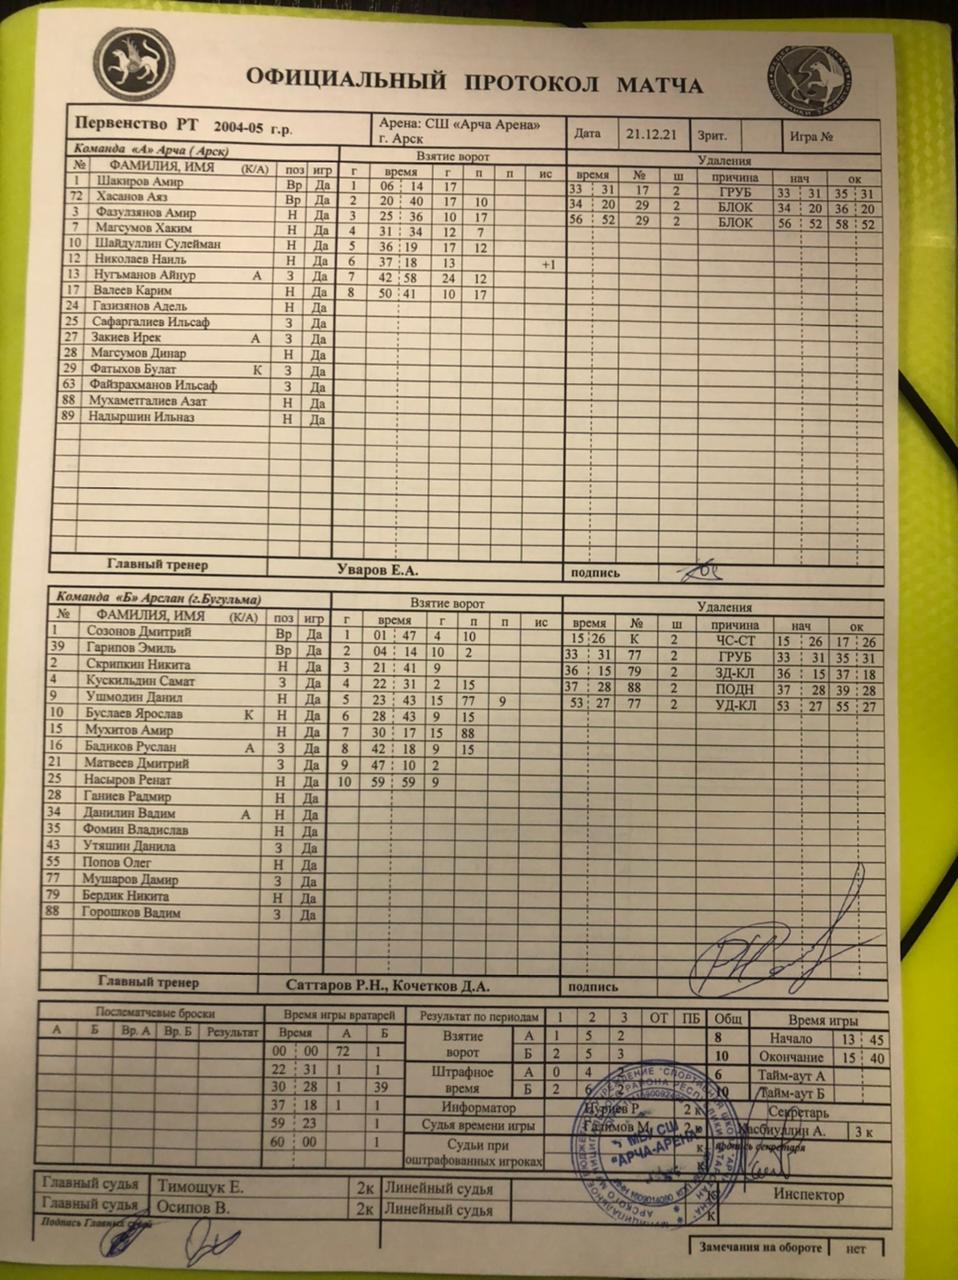 ОФИЦИАЛЬНЫЙ ПРОТОКОЛ МАТЧА
Первенство РТ 2004-05 г.р. Арена: СШ «Арча Арена» г. Арск Дата 21.12.21 Зрит. Игра №
Команда «А» Арча ( Арск) Взятие ворот Удаления
№ ФАМИЛИЯ, ИМЯ (К/А) поз игр г время г п п ис время № ш причина нач ок
1 Шакиров Амир Вр Да 1 06 14 17 33 31 17 2 ГРУБ 33 31 35 31
72 Хасанов Аяз Вр Да 2 20 40 17 10 34 20 29 2 БЛОК 34 20 36 20
3 Фазулзянов Амир Н Да 3 25 36 10 17 56 52 29 2 БЛОК 56 52 58 52
7 Магсумов Хаким Н Да 4 31 34 12 7
10 Шайдуллин Сулейман Н Да 5 36 19 17 12
12 Николаев Наиль Н Да 6 37 18 13 +1
13 Нугъманов Айнур А З Да 7 42 58 24 12
17 Валеев Карим Н Да 8 50 41 10 17
24 Газизянов Адель Н Да
25 Сафаргалиев Ильсаф З Да
27 Закиев Ирек А З Да
28 Магсумов Динар Н Да
29 Фатыхов Булат К З Да
63 Файзрахманов Ильсаф З Да
88 Мухаметгалиев Азат Н Да
89 Надыршин Ильназ Н Да
Главный тренер Уваров Е.А. подпись
Команда «Б» Арслан (г.Бугульма) Взятие ворот Удаления
№ ФАМИЛИЯ, ИМЯ (К/А) поз игр г время г п п ис время № ш причина нач ок
1 Созонов Дмитрий Вр Да 1 01 47 4 10 15 26 К 2 ЧС-СТ 15 26 17 26
39 Гарипов Эмиль Вр Да 2 04 14 10 2 33 31 77 2 ГРУБ 33 31 35 31
2 Скрипкин Никита Н Да 3 21 41 9 36 15 79 2 ЗД-КЛ 36 15 37 18
4 Кускильдин Самат З Да 4 22 31 2 15 37 28 88 2 ПОДН 37 28 39 28
9 Ушмодин Данил Н Да 5 23 43 15 77 9 53 27 77 2 УД-КЛ 53 27 55 27
10 Буслаев Ярослав К Н Да 6 28 43 9 15
15 Мухитов Амир Н Да 7 30 17 15 88
16 Бадиков Руслан А З Да 8 42 18 9 15
21 Матвеев Дмитрий З Да 9 47 10 2
25 Насыров Ренат Н Да 10 59 59 9
28 Ганиев Радмир Н Да
34 Данилин Вадим А Н Да
35 Фомин Владислав Н Да
43 Утяшин Данила З Да
55 Попов Олег Н Да
77 Мушаров Дамир З Да
79 Бердик Никита Н Да
88 Горошков Вадим З Да
Главный тренер Саттаров Р.Н., Кочетков Д.А. подпись
Послематчевые броски Время игры вратарей Результат по периодам 1 2 3 ОТ ПБ Общ Время игры
А Б Вр. А Вр. Б Результат Время А Б Взятие ворот А 1 5 2 8 Начало 13 45
00 00 72 1 Б 2 5 3 10 Окончание 15 40
22 31 1 1 Штрафное время А 0 4 2 6 Тайм-аут А
30 28 1 39 Б 2 6 2 10 Тайм-аут Б
37 18 1 1 Информатор Нуриев Р. 2 к Секретарь
59 23 1 Судья времени игры Галимов М. 2 к Хасбиуллин А. 3 к
60 00 1 Судьи при оштрафованных игроках к подпись секретаря
к
МБУ СШ "АРЧА-АРЕНА"
Главный судья Тимощук Е. 2к Линейный судья к Инспектор
Главный судья Осипов В. 2к Линейный судья к
Подпись Главных судей
Замечания на обороте нет